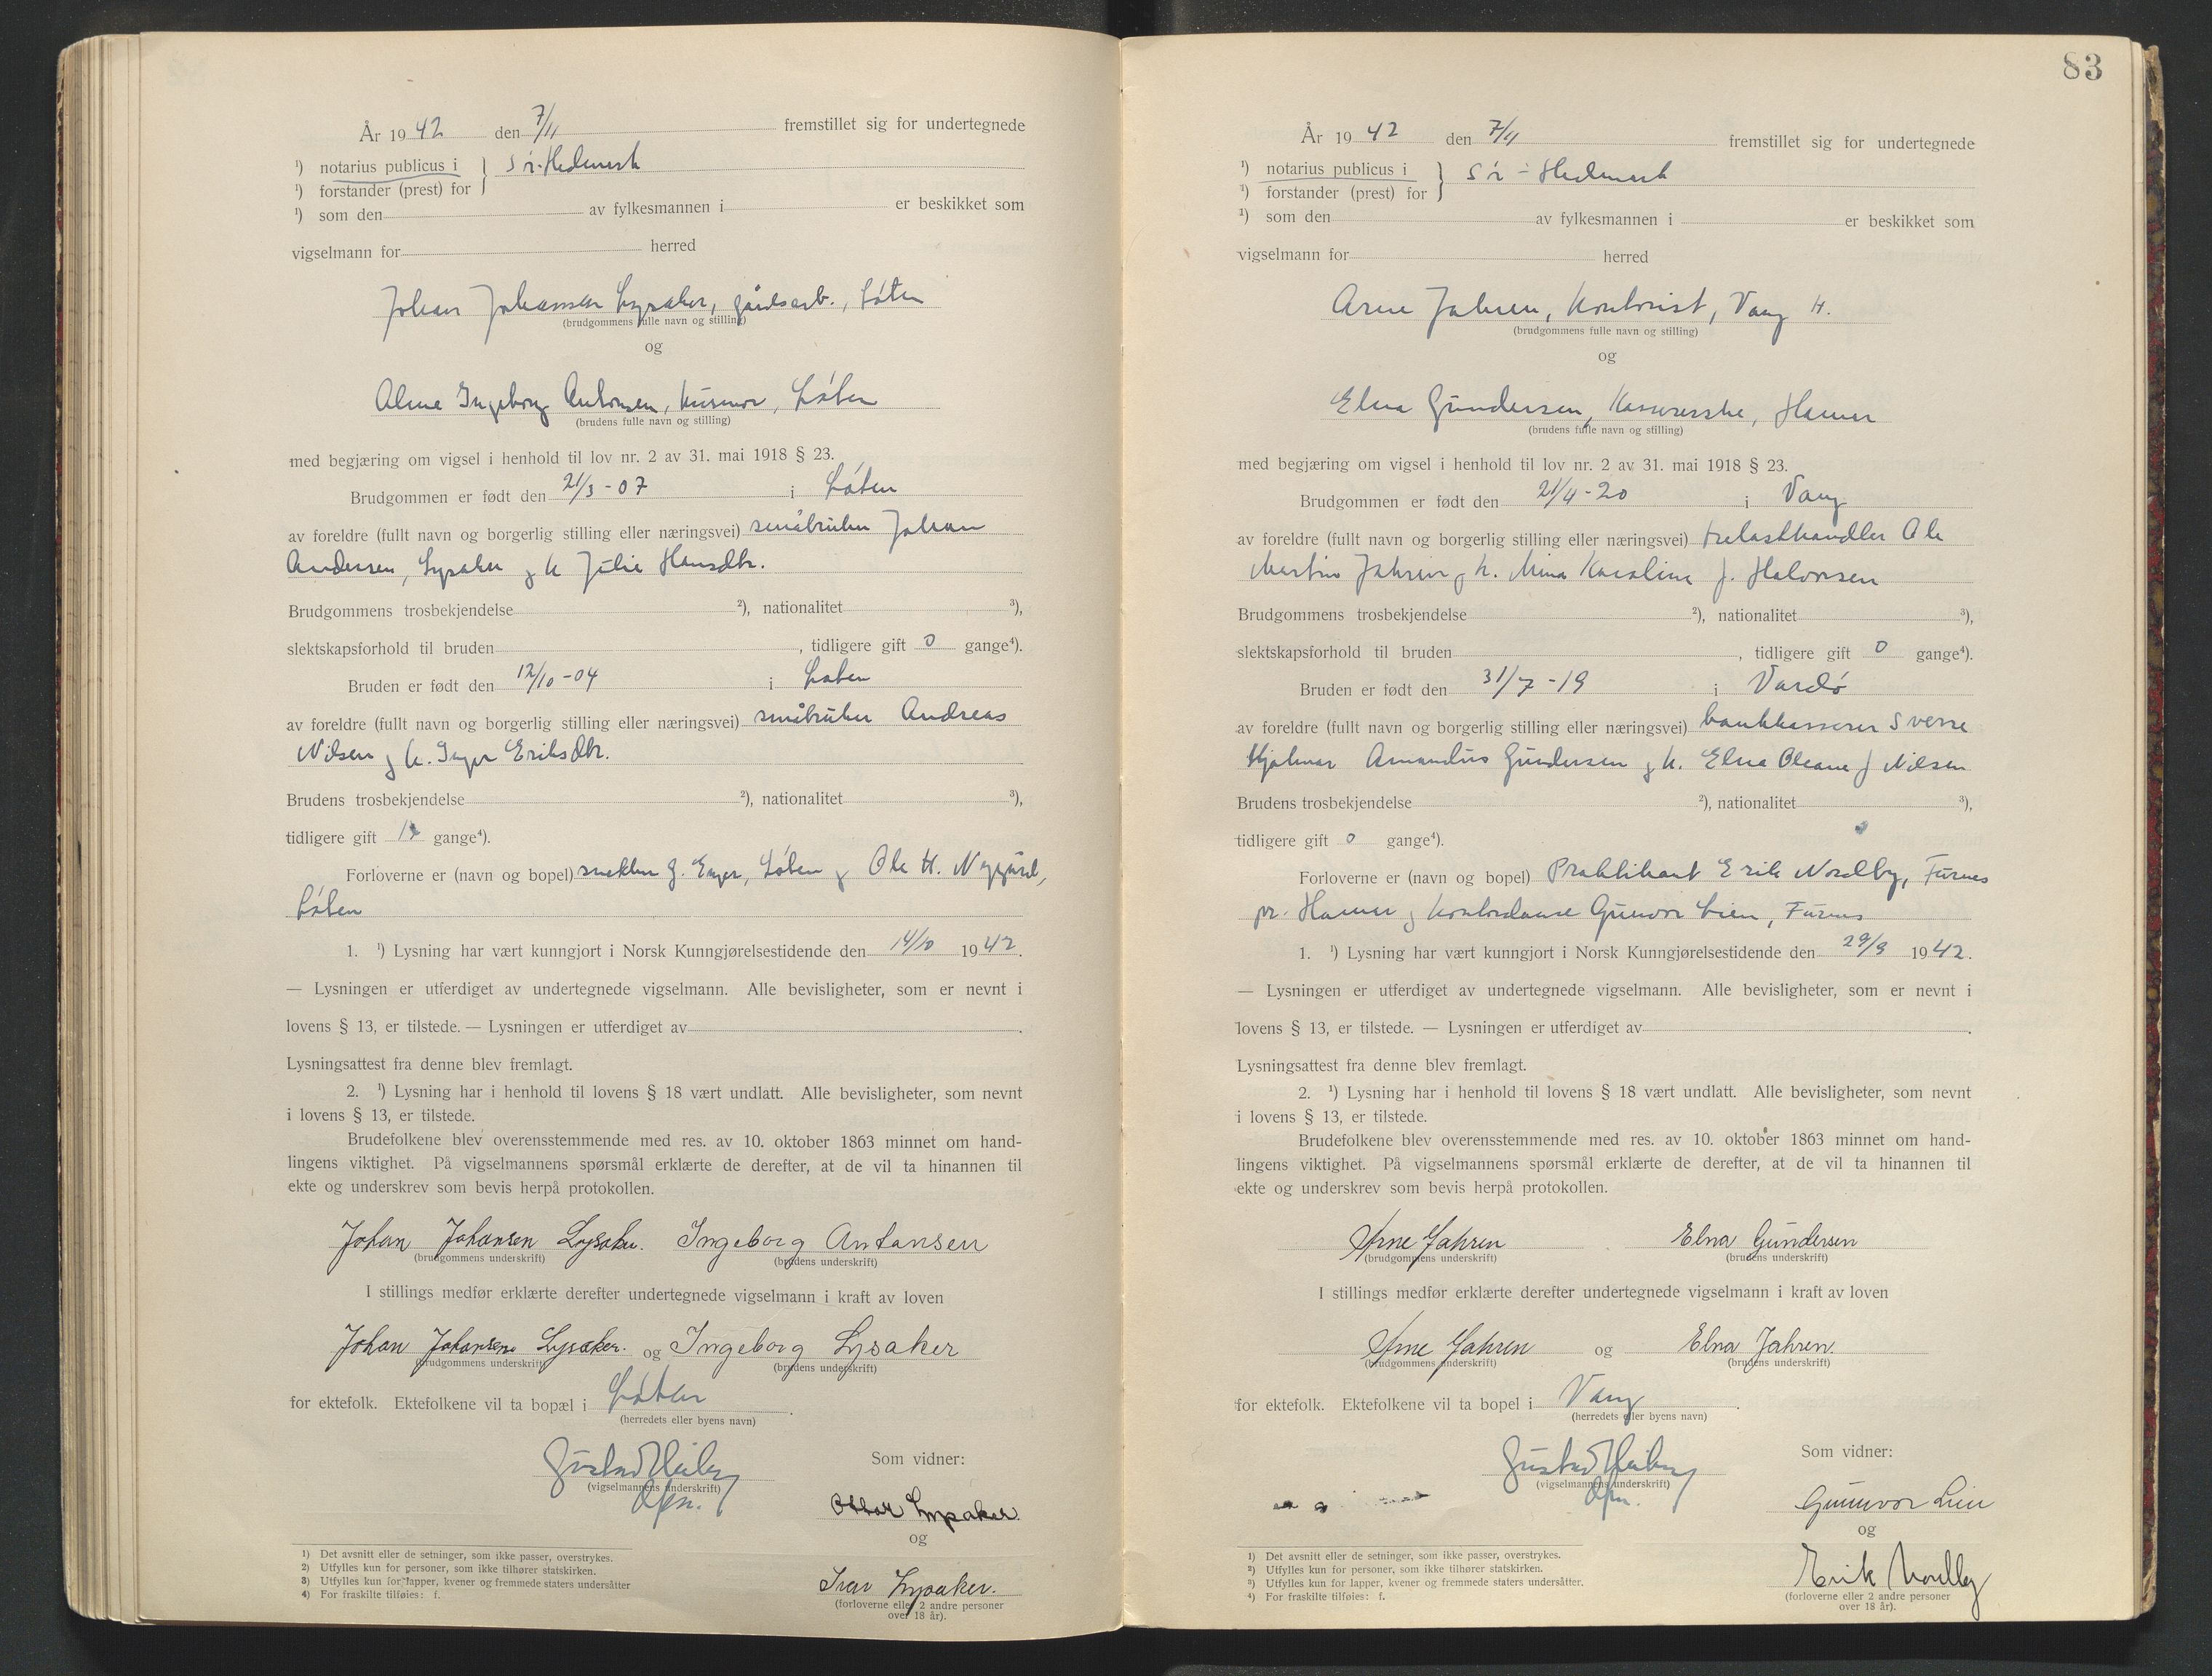 År 1942 den 7/11 fremstillet sig for undertegnede
¹) notarius publicus i } Sør-Hedmark
¹) forstander (prest) for
¹) som den av fylkesmannen i er beskikket som
vigselmann for herred
Johan Johansen Lysaker, gårdsarb., Løten
(brudgommens fulle navn og stilling)
og
Alma Ingeborg Antonsen, husmor, Løten
(brudens fulle navn og stilling)
med begjæring om vigsel i henhold til lov nr. 2 av 31. mai 1918 § 23.
Brudgommen er født den 21/3-07 i Løten
av foreldre (fullt navn og borgerlig stilling eller næringsvei) småbruker Johan
Andersen, Lysaker og h. Julie Hansdtr.
Brudgommens trosbekjendelse ²), nationalitet ³),
slektskapsforhold til bruden , tidligere gift 0 gange⁴).
Bruden er født den 12/10-04 i Løten
av foreldre (fullt navn og borgerlig stilling eller næringsvei) småbruker Andreas
Nilsen og h. Inger Eriksdtr.
Brudens trosbekjendelse ²), nationalitet ³),
tidligere gift 1 gange⁴).
Forloverne er (navn og bopel) snekker J. Enger, Løten og Ole H. Nygård,
Løten
1. ¹) Lysning har vært kunngjort i Norsk Kunngjørelsestidende den 14/10 1942.
— Lysningen er utferdiget av undertegnede vigselmann. Alle bevisligheter, som er nevnt i
lovens § 13, er tilstede. — Lysningen er utferdiget av .
Lysningsattest fra denne blev fremlagt.
2. ¹) Lysning har i henhold til lovens § 18 vært undlatt. Alle bevisligheter, som nevnt
i lovens § 13, er tilstede.
Brudefolkene blev overensstemmende med res. av 10. oktober 1863 minnet om hand-
lingens viktighet. På vigselmannens spørsmål erklærte de derefter, at de vil ta hinannen til
ekte og underskrev som bevis herpå protokollen.
Johan Johansen Lysaker. Ingeborg Antonsen
(brudgommens underskrift) (brudens underskrift)
I stillings medfør erklærte derefter undertegnede vigselmann i kraft av loven
Johan Johansen Lysaker. og Ingeborg Lysaker
(brudgommens underskrift) (brudens underskrift)
for ektefolk. Ektefolkene vil ta bopæl i Løten .
(herredets eller byens navn)
Gustav Heiberg
(vigselmannens underskrift)
Som vidner:
Ottar Lysaker
og
Ivar Lysaker.
(forloverne eller 2 andre personer
over 18 år).
1) Det avsnitt eller de setninger, som ikke passer, overstrykes.
2) Utfylles kun for personer, som ikke tilhører statskirken.
3) Utfylles kun for lapper, kvener og fremmede staters undersåtter
4) For fraskilte tilføies: f.
83
År 1942 den 7/11 fremstillet sig for undertegnede
¹) notarius publicus i } Sør-Hedmark
¹) forstander (prest) for
¹) som den av fylkesmannen i er beskikket som
vigselmann for herred
Arne Jahren, Kontorist, Vang H.
(brudgommens fulle navn og stilling)
og
Elna Gundersen, Kassererske, Hamar
(brudens fulle navn og stilling)
med begjæring om vigsel i henhold til lov nr. 2 av 31. mai 1918 § 23.
Brudgommen er født den 21/4-20 i Vang
av foreldre (fullt navn og borgerlig stilling eller næringsvei) trelasthandler Ole
Martin Jahren og h. Mina Karoline f. Halvorsen
Brudgommens trosbekjendelse ²), nationalitet ³),
slektskapsforhold til bruden , tidligere gift 0 gange⁴).
Bruden er født den 31/7-19 i Vardø
av foreldre (fullt navn og borgerlig stilling eller næringsvei) bankkasserer Sverre
Hjalmar Amandus Gundersen og h. Elna Oleane f Nilsen
Brudens trosbekjendelse ²), nationalitet ³),
tidligere gift 0 gange⁴).
Forloverne er (navn og bopel) Praktikant Erik Nordby, Furnes
pr. Hamar og Kontordame Gunvor Lien, Furnes
1. ¹) Lysning har vært kunngjort i Norsk Kunngjørelsestidende den 29/9 1942.
— Lysningen er utferdiget av undertegnede vigselmann. Alle bevisligheter, som er nevnt i
lovens § 13, er tilstede. — Lysningen er utferdiget av .
Lysningsattest fra denne blev fremlagt.
2. ¹) Lysning har i henhold til lovens § 18 vært undlatt. Alle bevisligheter, som nevnt
i lovens § 13, er tilstede.
Brudefolkene blev overensstemmende med res. av 10. oktober 1863 minnet om hand-
lingens viktighet. På vigselmannens spørsmål erklærte de derefter, at de vil ta hinannen til
ekte og underskrev som bevis herpå protokollen.
Arne Jahren Elna Gundersen
(brudgommens underskrift) (brudens underskrift)
I stillings medfør erklærte derefter undertegnede vigselmann i kraft av loven
Arne Jahren og Elna Jahren
(brudgommens underskrift) (brudens underskrift)
for ektefolk. Ektefolkene vil ta bopel i Vang .
(herredets eller byens navn)
Gustav Heiberg
(vigselmannens underskrift)
Som vidner:
Gunnvor Lien
og
Erik Nordby
(forloverne eller 2 andre personer
over 18 år).
1) Det avsnitt eller de setninger, som ikke passer, overstrykes.
2) Utfylles kun for personer, som ikke tilhører statskirken.
3) Utfylles kun for lapper, kvener og fremmede staters undersåtter.
4) For fraskilte tilføies: f.